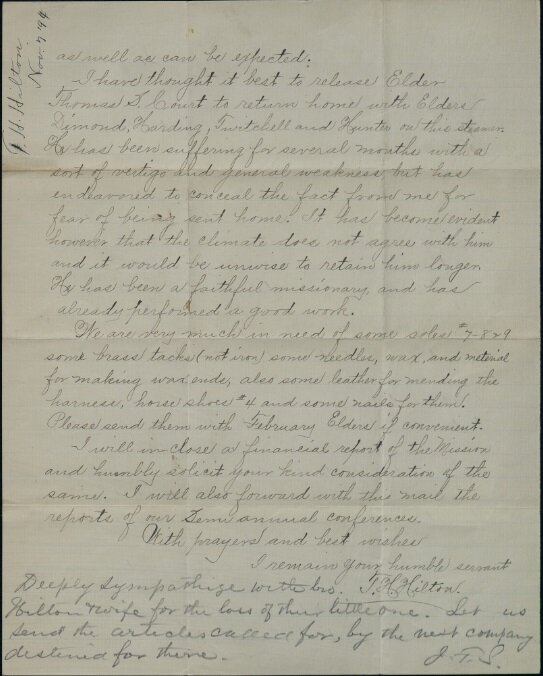 T. H. Hilton
Nov. 7 '94
as well as can be expected.
I have thought it best to release Elder
Thomas S. Court to return home with Elders
Dimond, Harding, Twitchell and Hunter on this steamer.
He has been suffering for several months with a
sort of vertigo and general weakness, but has
endeavored to conceal the fact from me for
fear of being sent home. It has become evident
however that the climate does not agree with him
and it would be unwise to retain him longer.
He has been a faithful missionary, and has
already performed a good work.
We are very much in need of some soles #7-8 & 9
some brass tacks (not iron) some needles, wax, and material
for making wax ends, also some leather for mending the
harness, horse shoes #4 and some nails for them.
Please send them with February Elders if convenient.
I will inclose a financial report of the Mission
and humbly solicit your kind consideration of the
same. I will also forward with this mail the
reports of our Semi annual conferences.
With prayers and best wishes
I remain your humble servant
T. H. Hilton.
Deeply sympathize with bro.
Hilton & wife for the loss of their little one. Let us
send the articles called for, by the next company
destined for there. J. F. S.